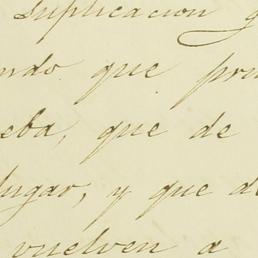 Suplicacion g
ndo que pru
eba, que de
lugar, y que de
vuelven a